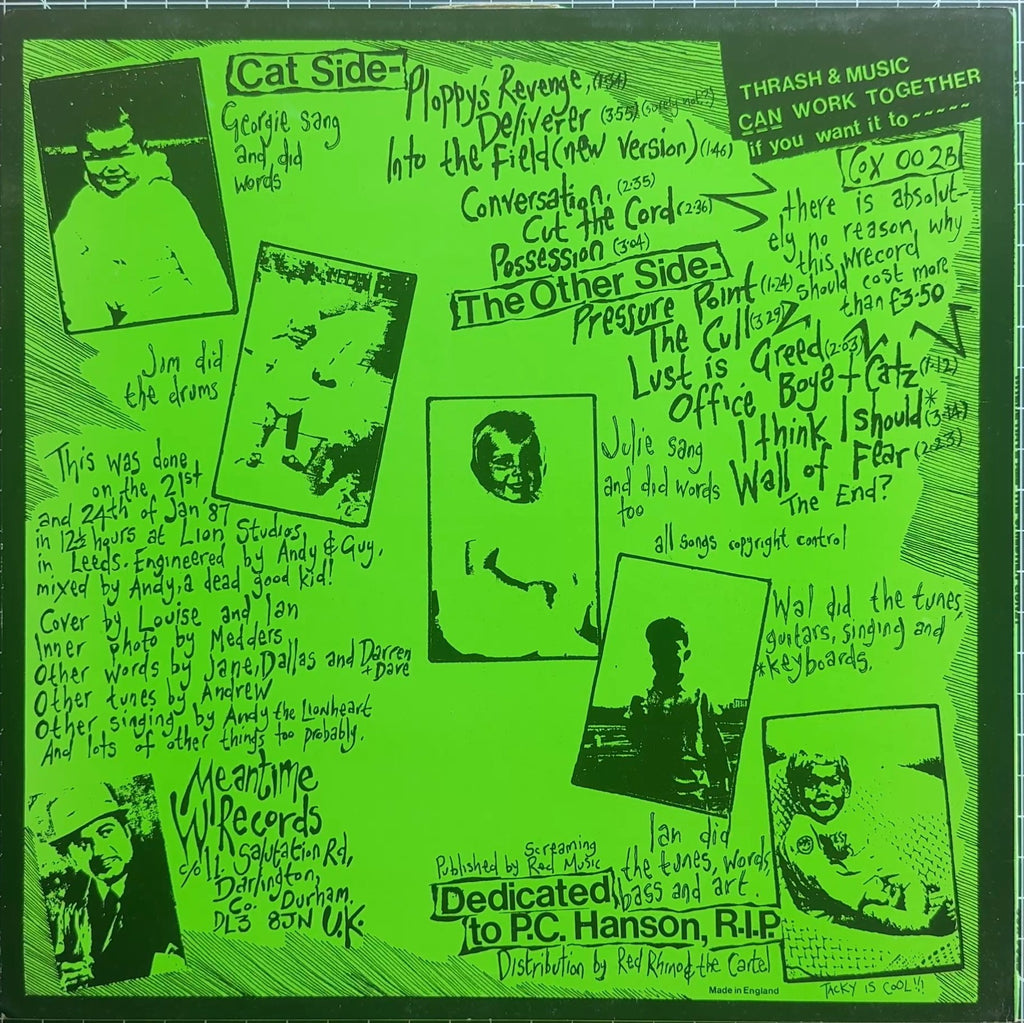 Cat Side-
Georgie sang
and did
words
Ploppy's Revenge, (1·34)
Deliverer (3·55) (surely not?)
Into the Field (new version) (1·46)
Conversation, (2·35)
Cut the Cord (2·36)
Possession (3·04)
THRASH & MUSIC
CAN WORK TOGETHER
if you want it to ~~~~~
COX 002B
there is absolut-
ely no reason why
this wrecord
should cost more
than £3·50
The Other Side-
Pressure Point (1·24)
The Cull (3·29)
Lust is Greed (2·03)
Office Boyz + Catz (1·12)
I think I should* (3·14)
Wall of Fear (2·23)
The End?
Jim did
the drums
Julie sang
and did words
too
all songs copyright control
This was done
on the 21st
and 24th of Jan '87
in 12½ hours at Lion Studios
in Leeds. Engineered by Andy & Guy,
mixed by Andy, a dead good kid!
Cover by Louise and Ian
Inner photo by Medders
Other words by Jane, Dallas and Darren
+ Dave
Other tunes by Andrew
Other singing by Andy the Lionheart
And lots of other things too probably.
Wal did the tunes,
guitars, singing and
*keyboards.
Meantime
Records
c/o 11, Salutation Rd,
Darlington,
Co. Durham.
DL3 8JN U.K.
Ian did
the tunes, words,
bass and art.
Published by Screaming
Red Music
Dedicated
to P.C. Hanson, R.I.P.
Distribution by Red Rhino & the Cartel
Made in England
TACKY IS COOL!!!